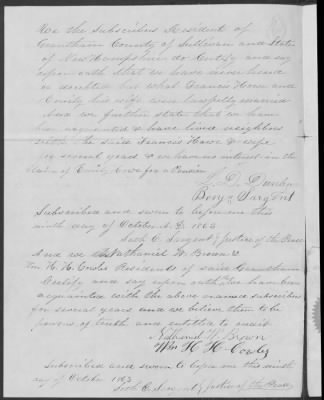 We the Subscribers Resident of
Grantham County of Sullivan and State
of New Hampshire do Certify and say
upon oath that we have never heard
or doubted but what Francis Howe and
Emily his wife were lawfully married
And we further state that we have
been acquainted & have lived neighbors
with the said Francis Howe & wife
for several years & we have no interest in the
claim of Emily Howe for a Pension
D. Dunbar
Subscribed and sworn to before me this
ninth day of October A.D. 1863
Justice of the Peace
And we Nathaniel W. Brown &
Wm H. H. Residents of said Grantham
Certify and say upon oath we have been
acquainted with the above named subscribers
for several years and we believe them to be
persons of truth and entitled to credit
W. Brown
Wm H H
Subscribed and sworn to before me this ninth
day of October 1863
Justice of the Peace